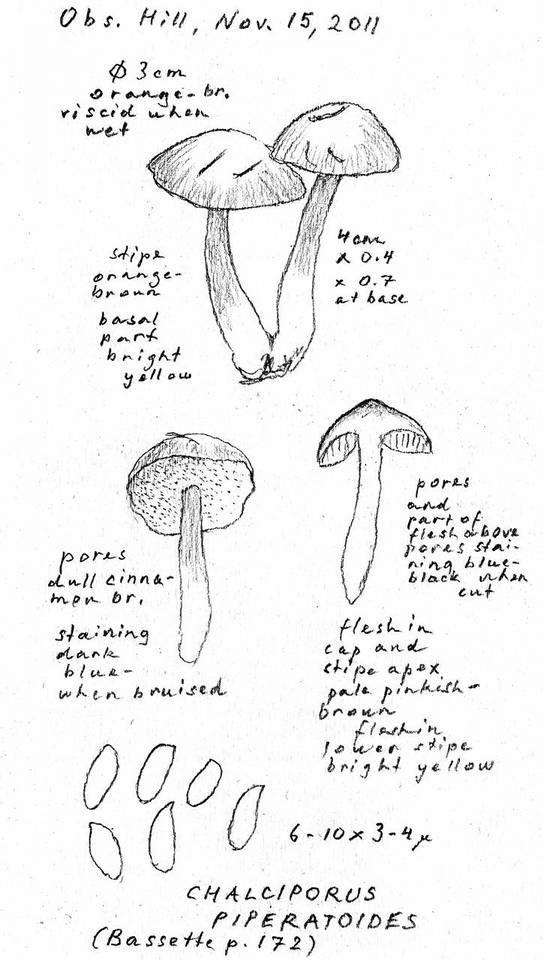 Obs. Hill, Nov. 15, 2011
Ø 3cm
orange-br.
viscid when
wet
stipe
orange-
brown
basal
part
bright
yellow
4cm
x 0.4
x 0.7
at base
pores
dull cinna-
mon br.
staining
dark
blue-
when bruised
pores
and
part of
flesh above
pores stai-
ning blue-
black when
cut
flesh in
cap and
stipe apex
pale pinkish-
brown
flesh in
lower stipe
bright yellow
6-10 x 3-4 µ
CHALCIPORUS
PIPERATOIDES
(Bassette p. 172)